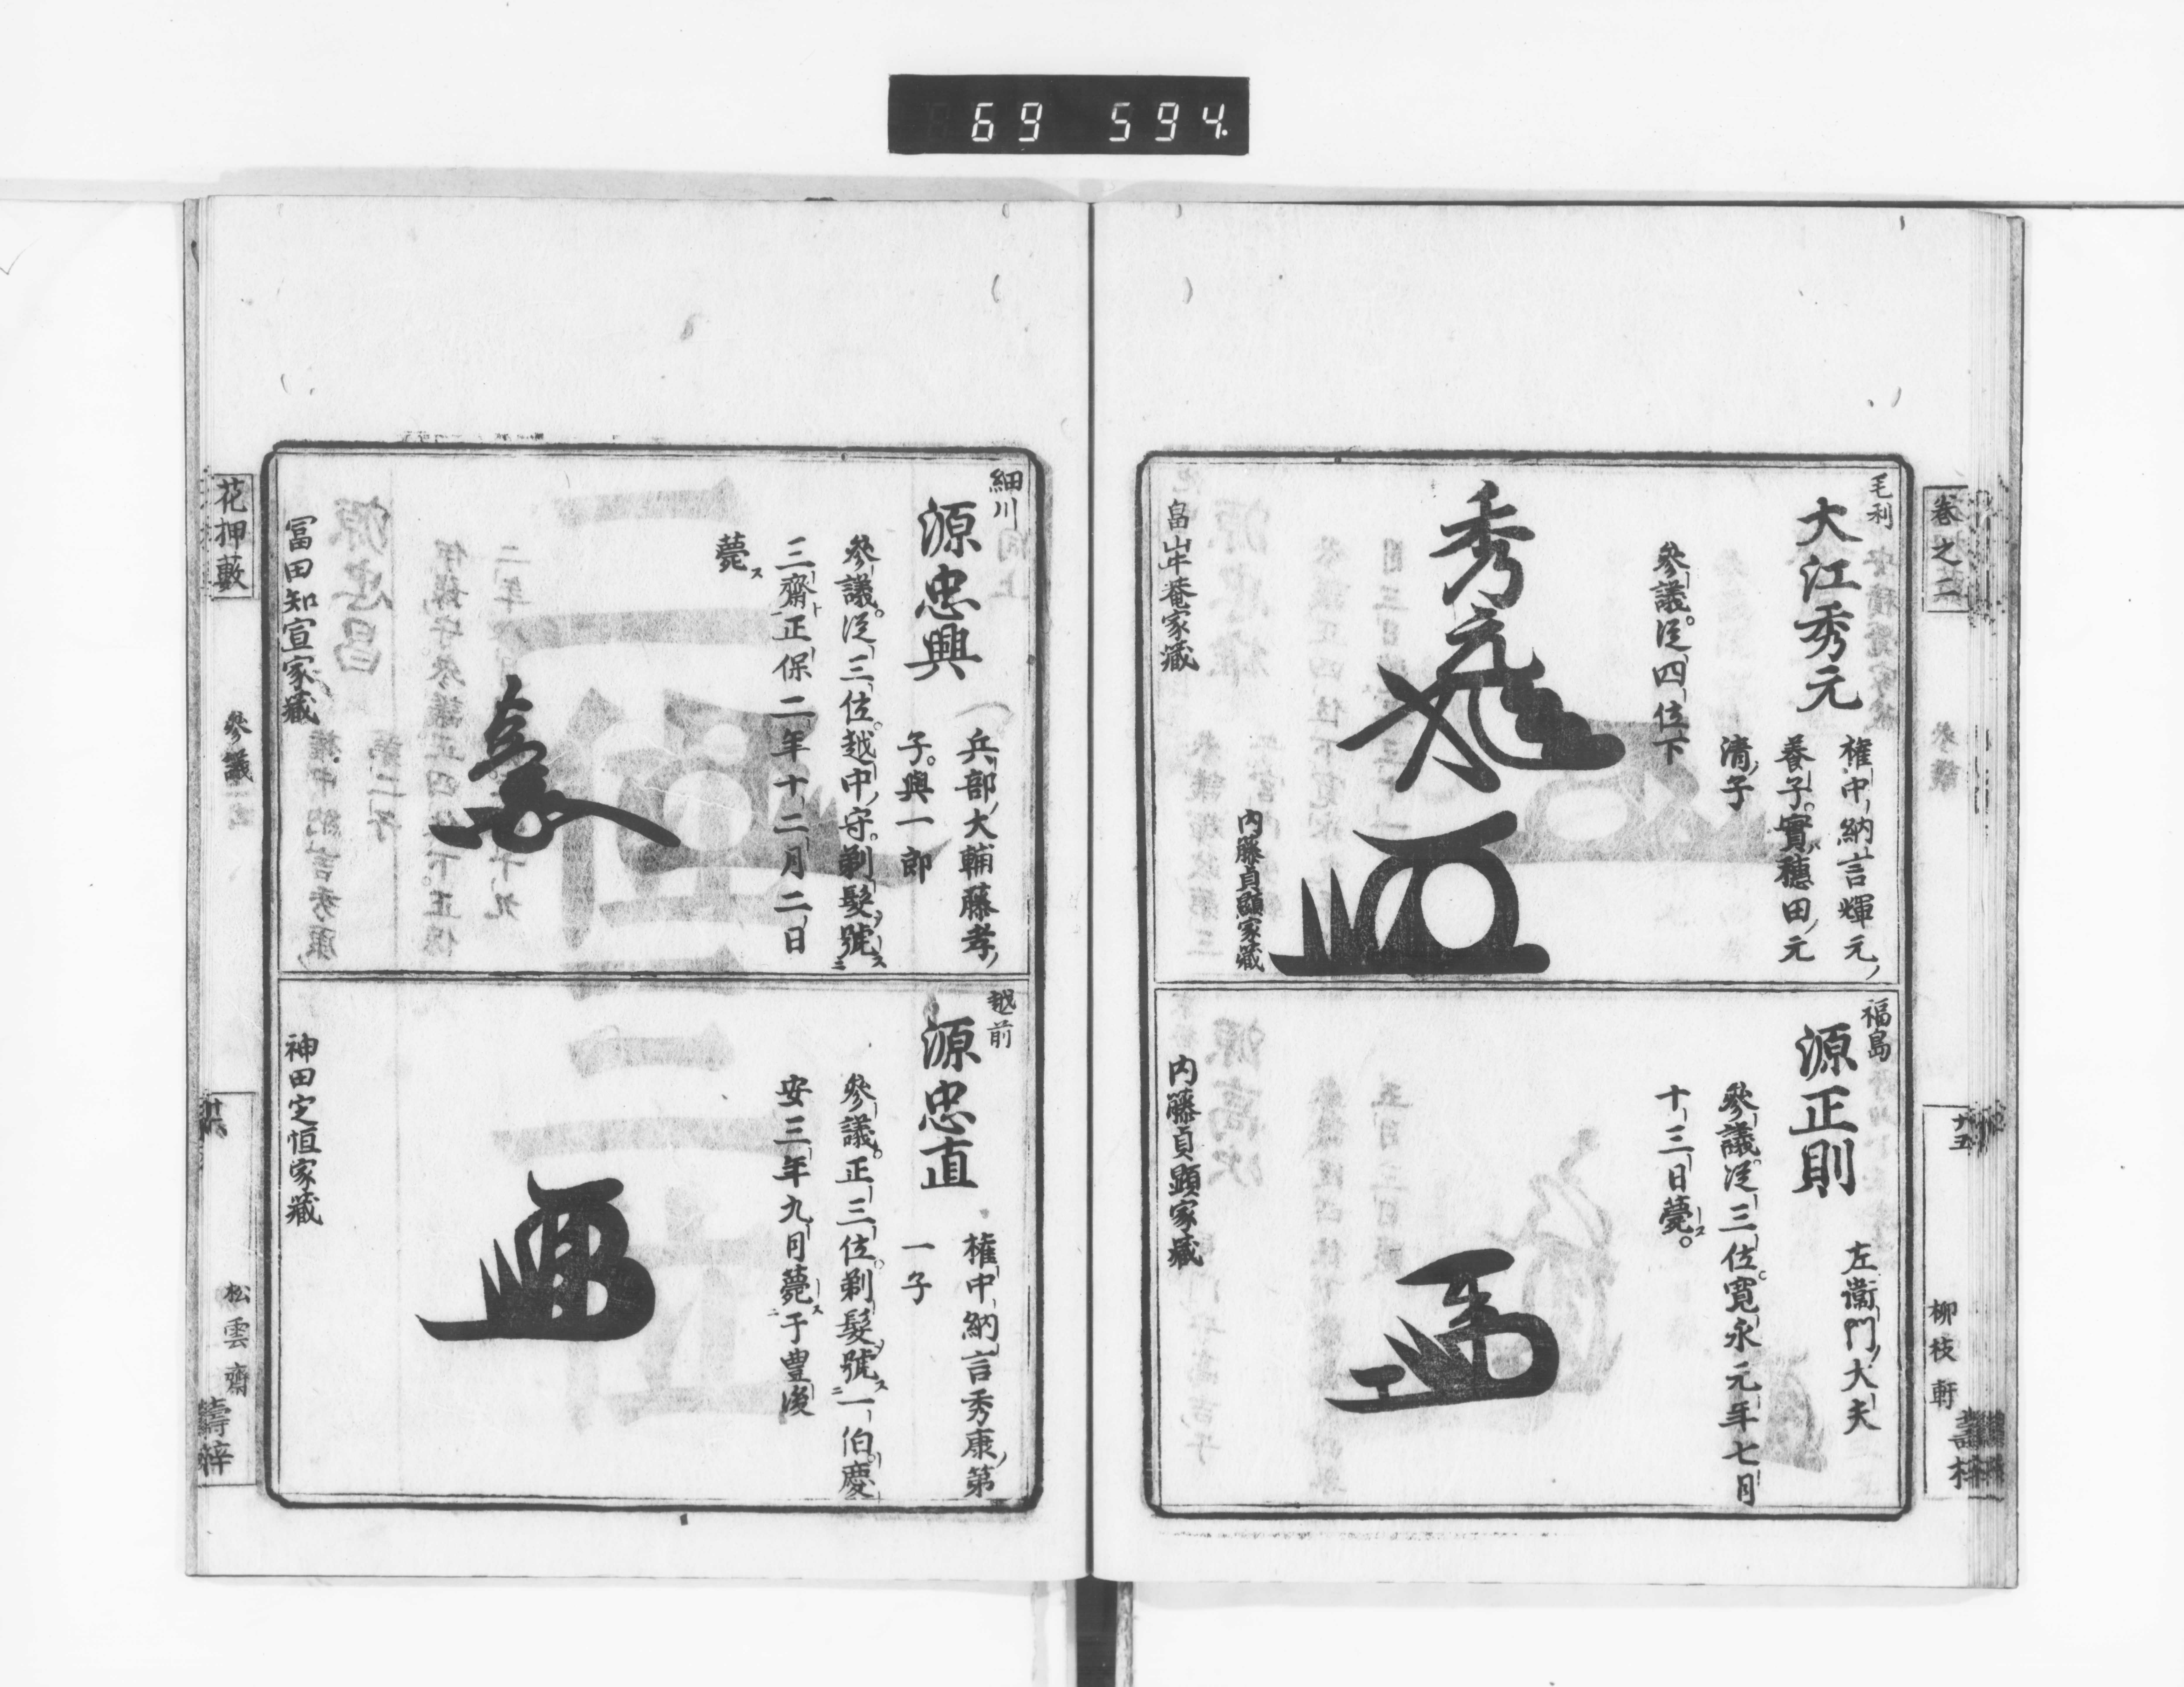 69 594.
卷之二
參議
十五
柳枝軒
毛利
大江秀元
權中納言輝元ノ
養子。實ハ穗田ノ元
清ノ子
參議。從四位下
秀元
畠山牛菴家藏
内藤貞顕家藏
福島
源正則
左衞門ノ大夫
參議從三位。寛永元年七月
十三日薨ス。
内藤貞顕家藏
細川
源忠興
兵部ノ大輔藤孝ノ
子。與一郎
參議。從三位。越中ノ守。剃髮乄號ス
三齋ト正保二年十二月二日
薨ス
冨田知宣家藏
越前
源忠直
權中納言秀康ノ第
一子
參議。正三位。剃髮乄號ス一伯。慶
安三年九月薨ス于豊後
神田定恒家藏
花押藪
參議
松雲齋